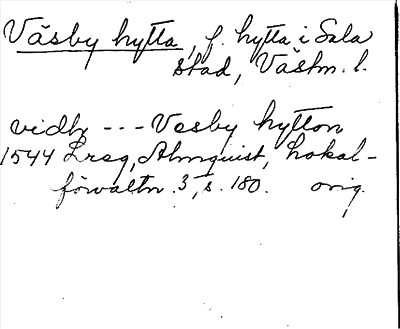 Väsby hytta, f. hytta i Sala
stad, Västm. l.
vidh --- Vesby hytton
1544 Lreg, Almquist, Lokal-
förvaltn. 3, s. 180. orig.